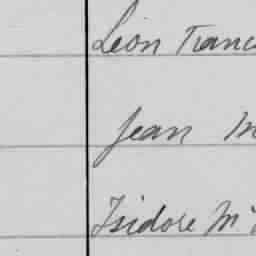 Leon Franc
Jean M
Isidore Mc